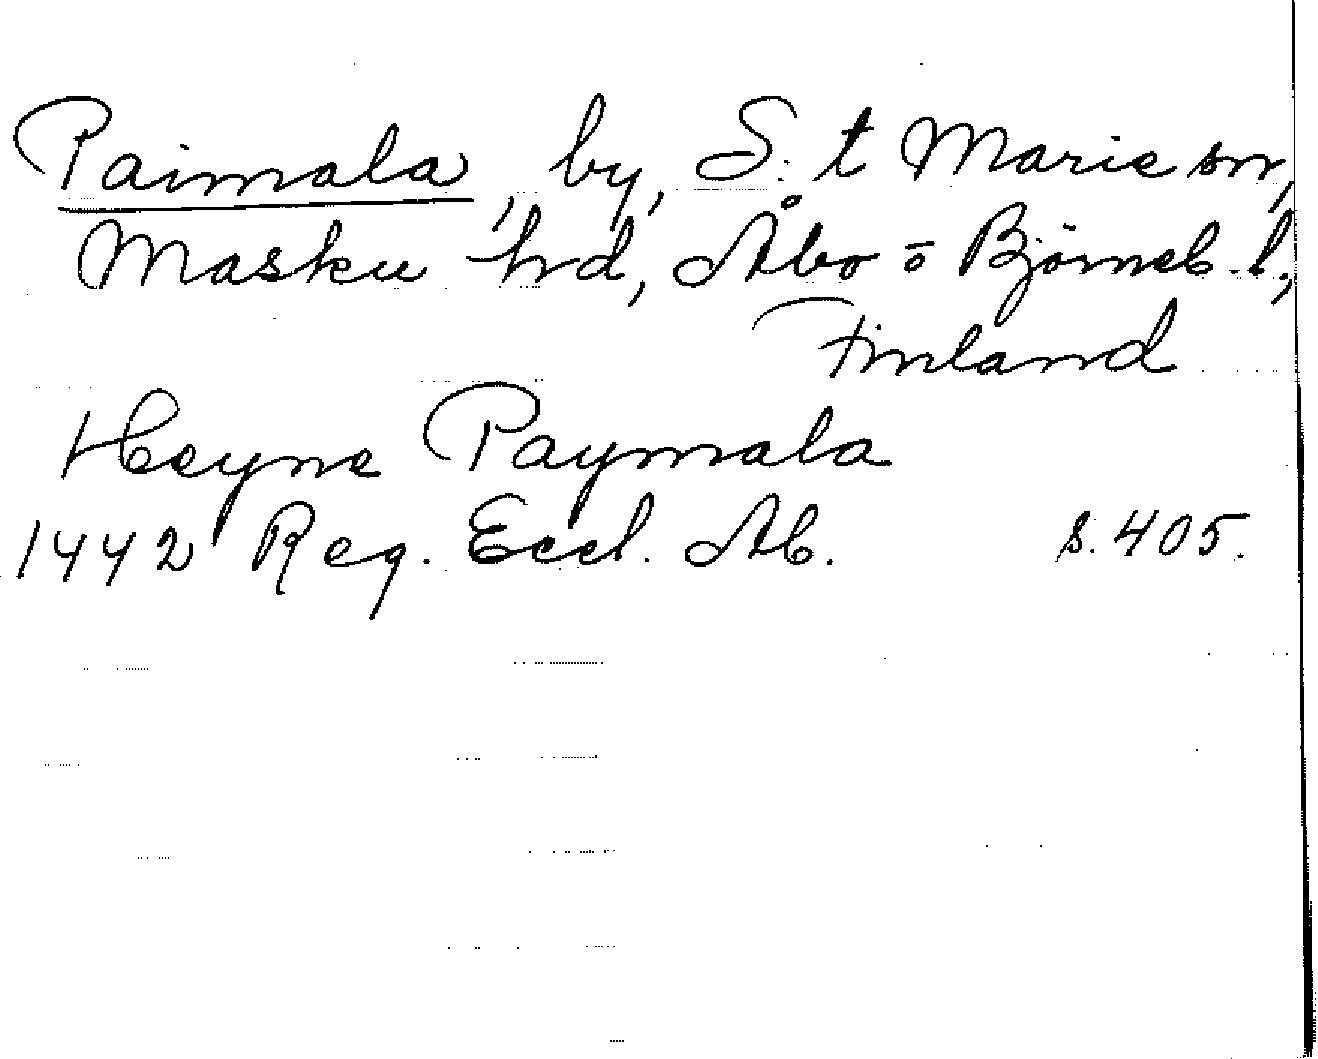 Paimala, by, S:t Marie sn,
Masku hrd, Åbo o Björneb. l.,
Finland
Heyne Paymala
1442 Reg. Eccl. Ab. s. 405.